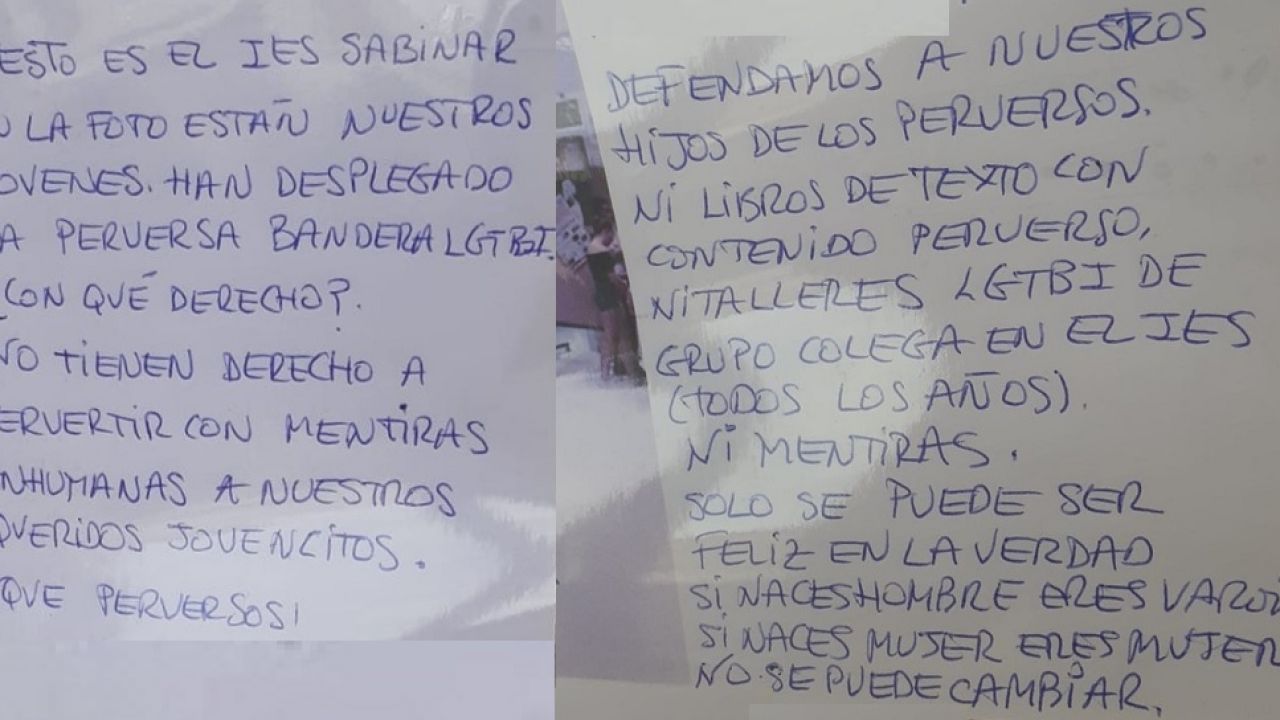 ESTO ES EL IES SABINAR
LA FOTO ESTÁN NUESTROS
OVENES. HAN DESPLEGADO
A PERVERSA BANDERA LGTBI.
¿CON QUÉ DERECHO?.
NO TIENEN DERECHO A
ERVERTIR CON MENTIRAS
NHUMANAS A NUESTROS
QUERIDOS JOVENCITOS.
QUE PERVERSOS!
DEFENDAMOS A NUESTROS
HIJOS DE LOS PERVERSOS.
NI LIBROS DE TEXTO CON
CONTENIDO PERVERSO,
NI TALLERES LGTBI DE
GRUPO COLEGA EN EL IES
(TODOS LOS AÑOS).
NI MENTIRAS.
SOLO SE PUEDE SER
FELIZ EN LA VERDAD
SI NACES HOMBRE ERES VARON
SI NACES MUJER ERES MUJER
NO SE PUEDE CAMBIAR.